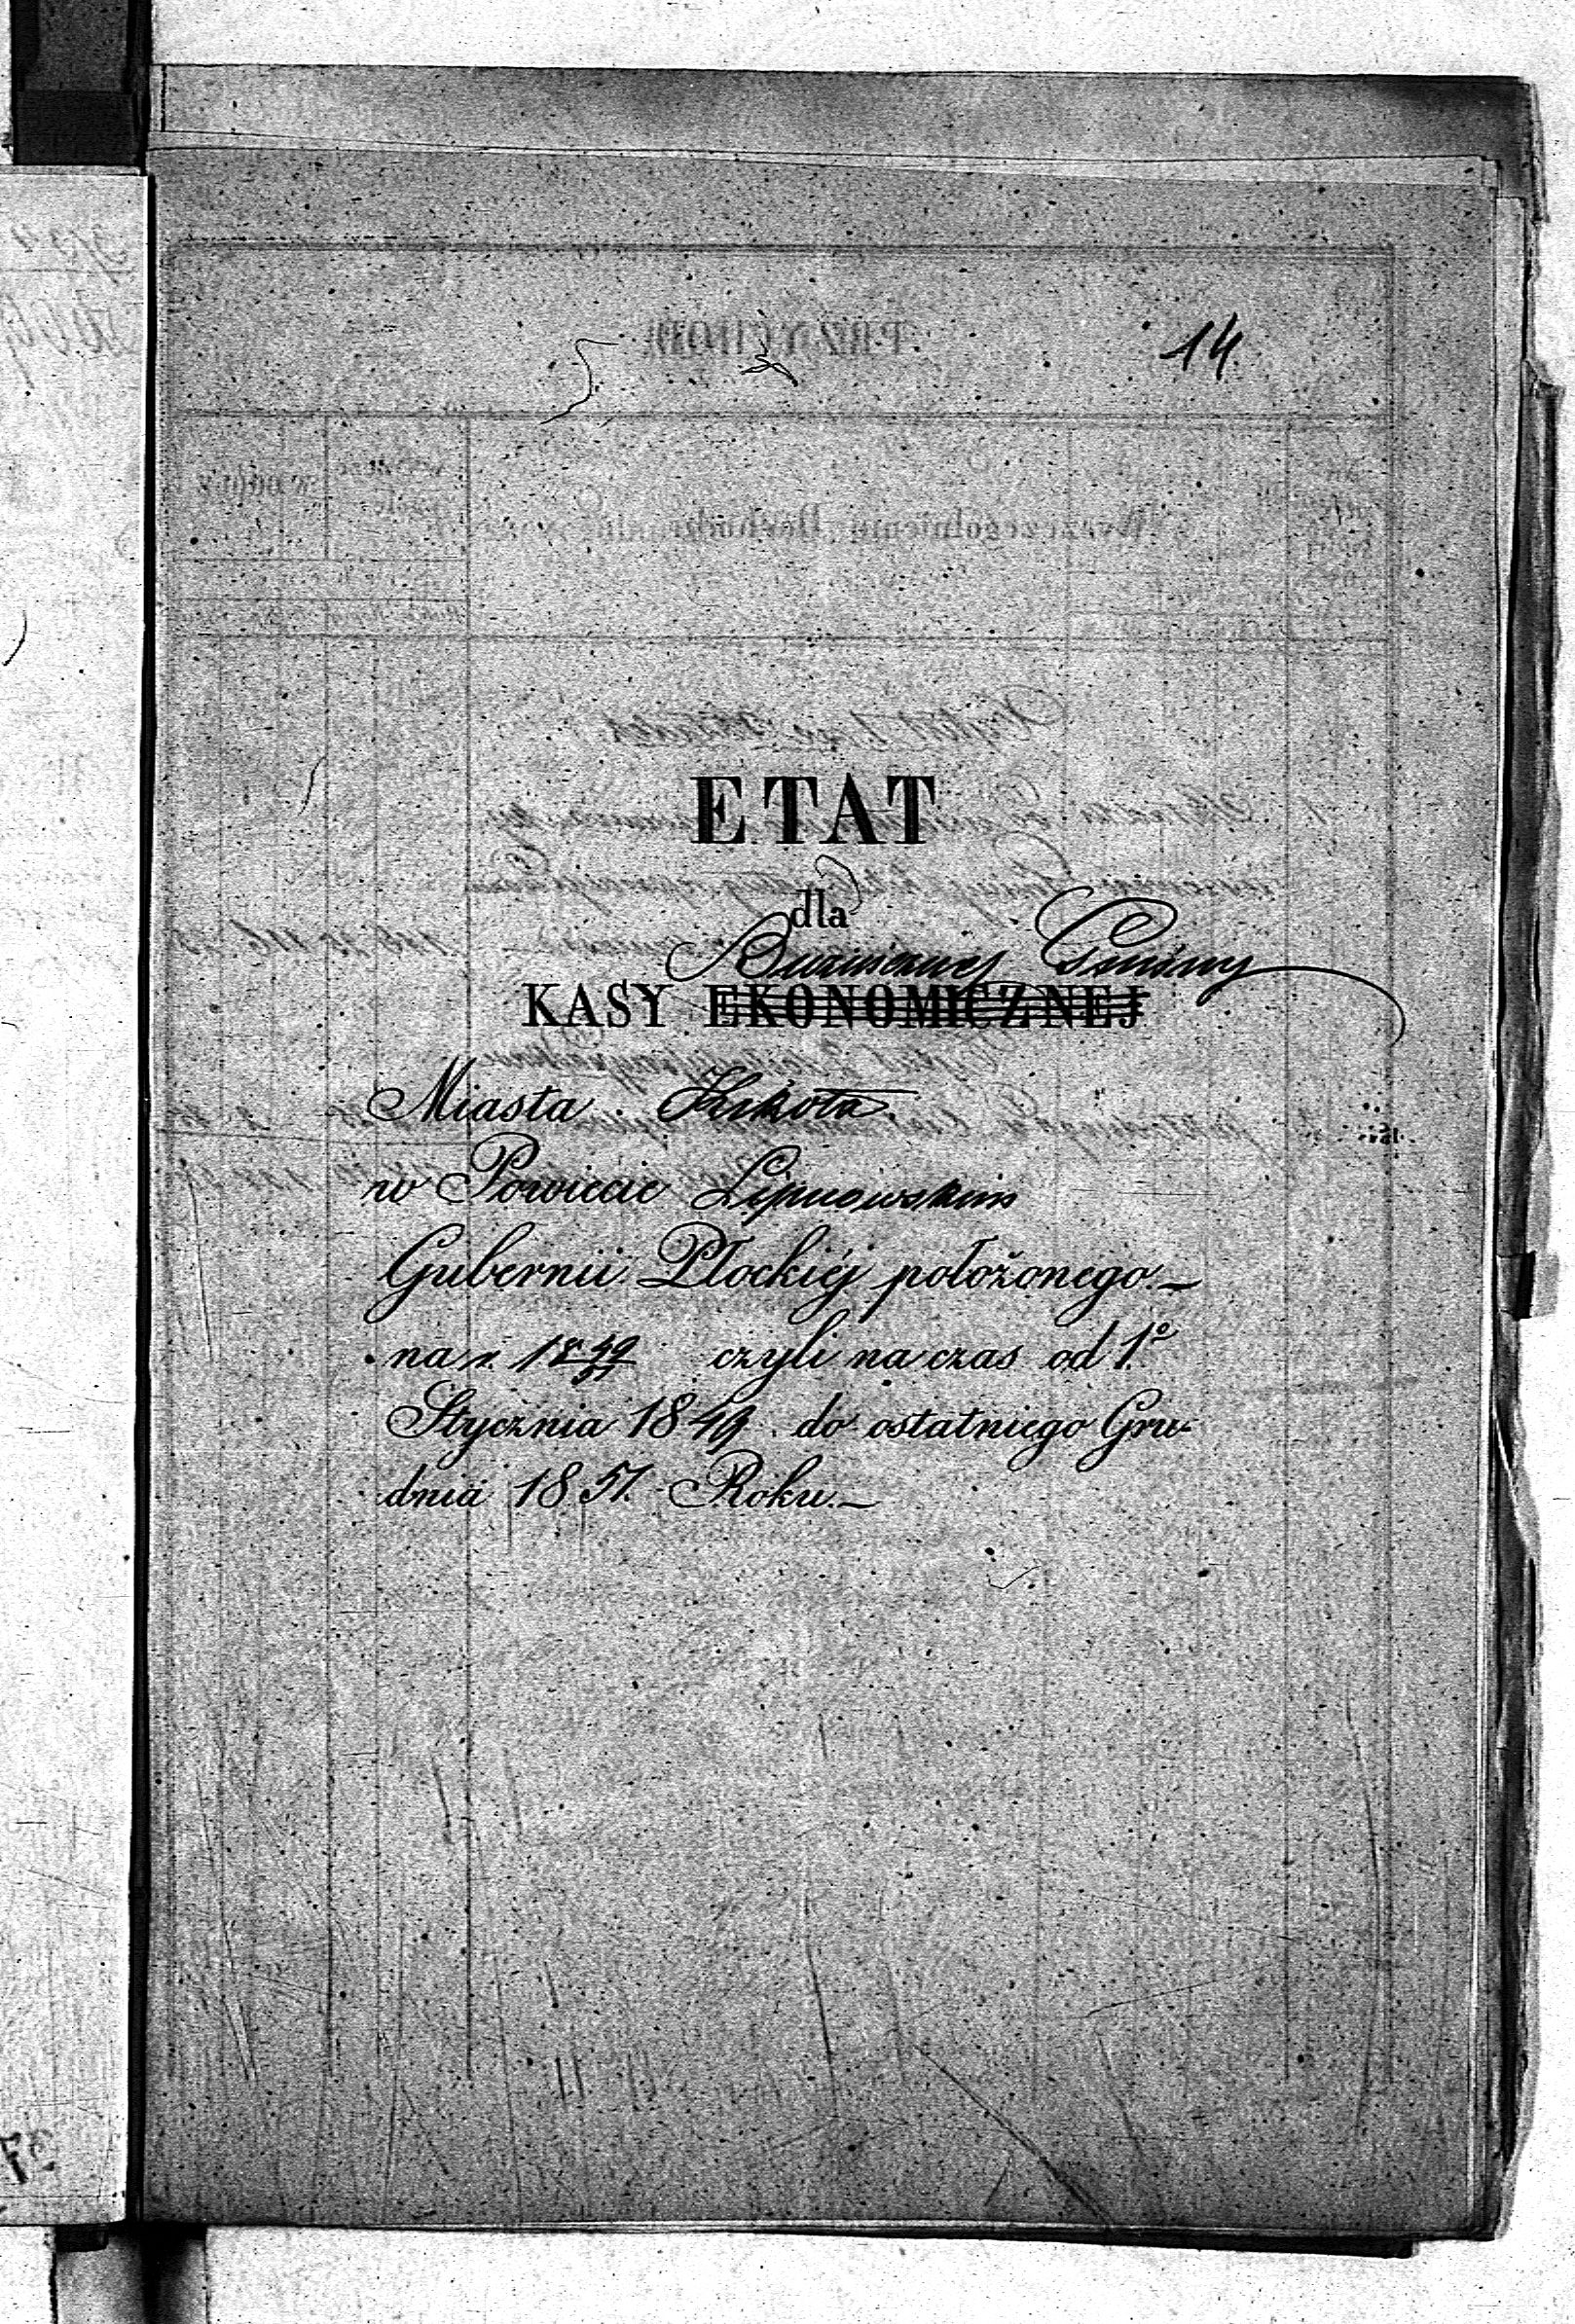 14.
ETAT
dla
Bużniczney Gminy
KASY EKONOMICZNEJ
Miasta Kikoła
w Powiecie Lipnowskim
Gubernii Płockiéj położonego.—
na r. 18 49/51 czyli na czas od 1.º
Stycznia 1849. do ostatniego Gru-
dnia 1851. Roku.—